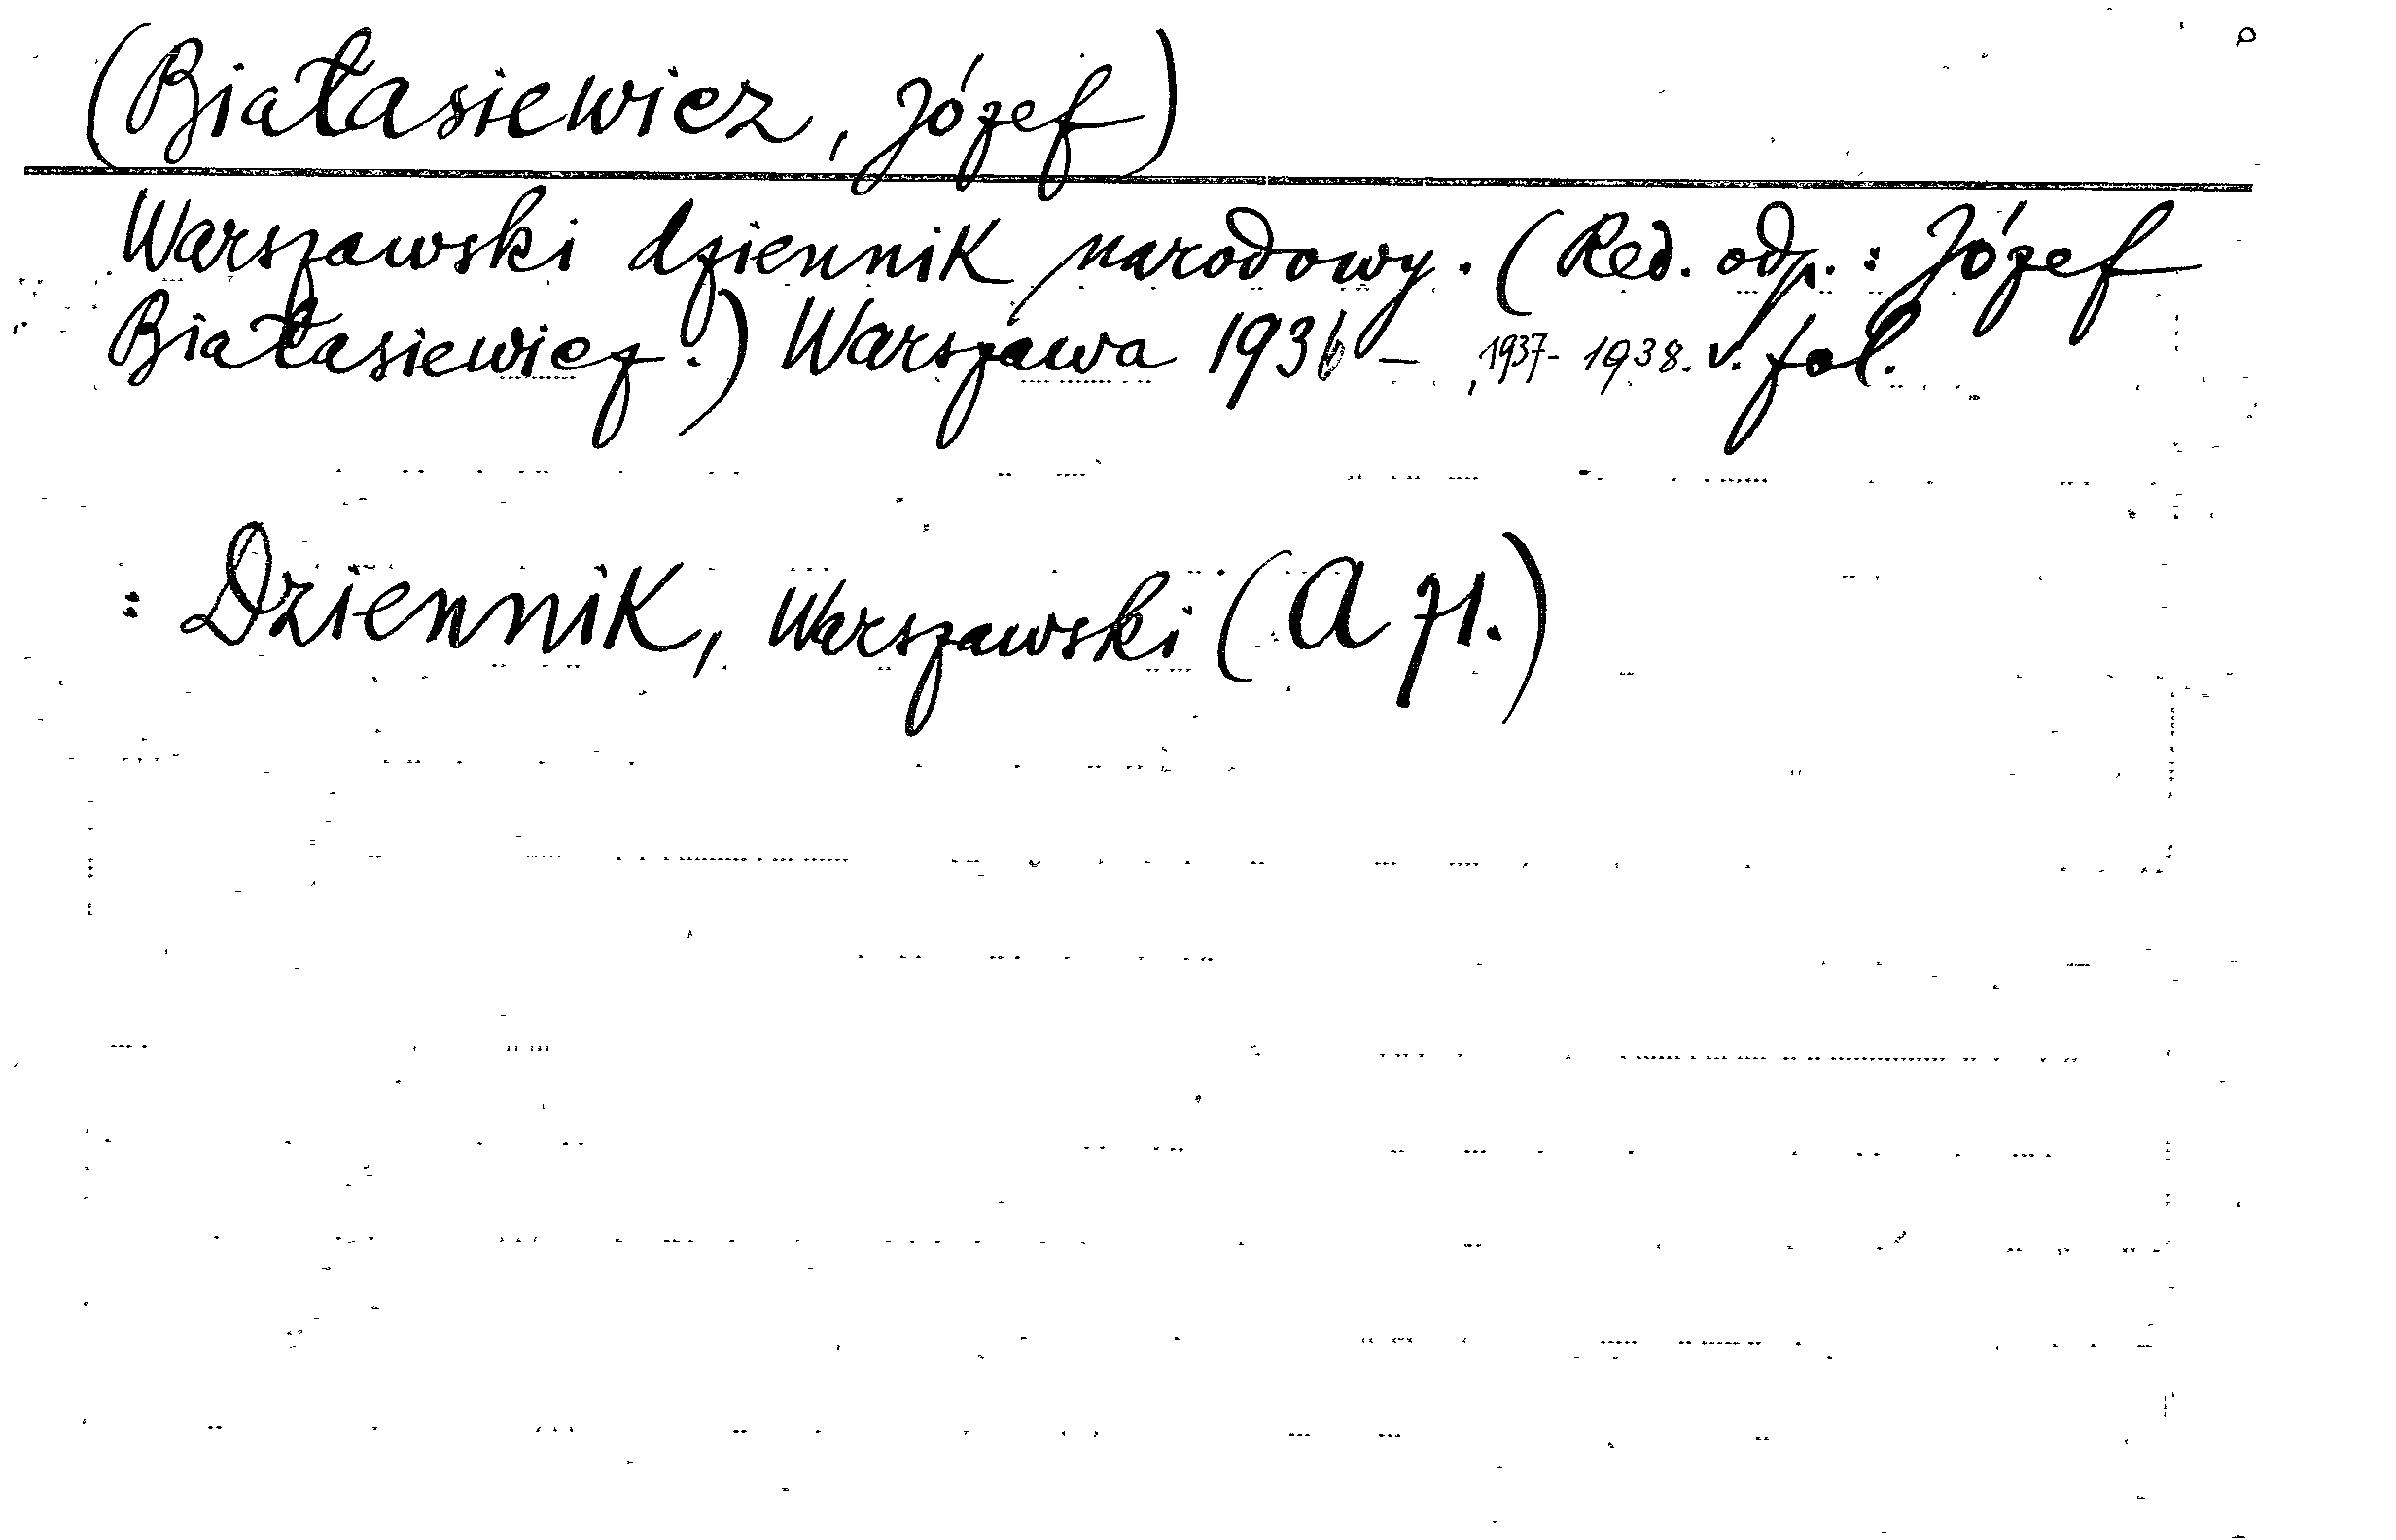 (Białasiewicz, Józef)
Warszawski dziennik narodowy. (Red. odp.: Józef
Białasiewicz.) Warszawa 1936 – , 1937- 1938. v. fol.
: Dziennik, Warszawski (A 71.)